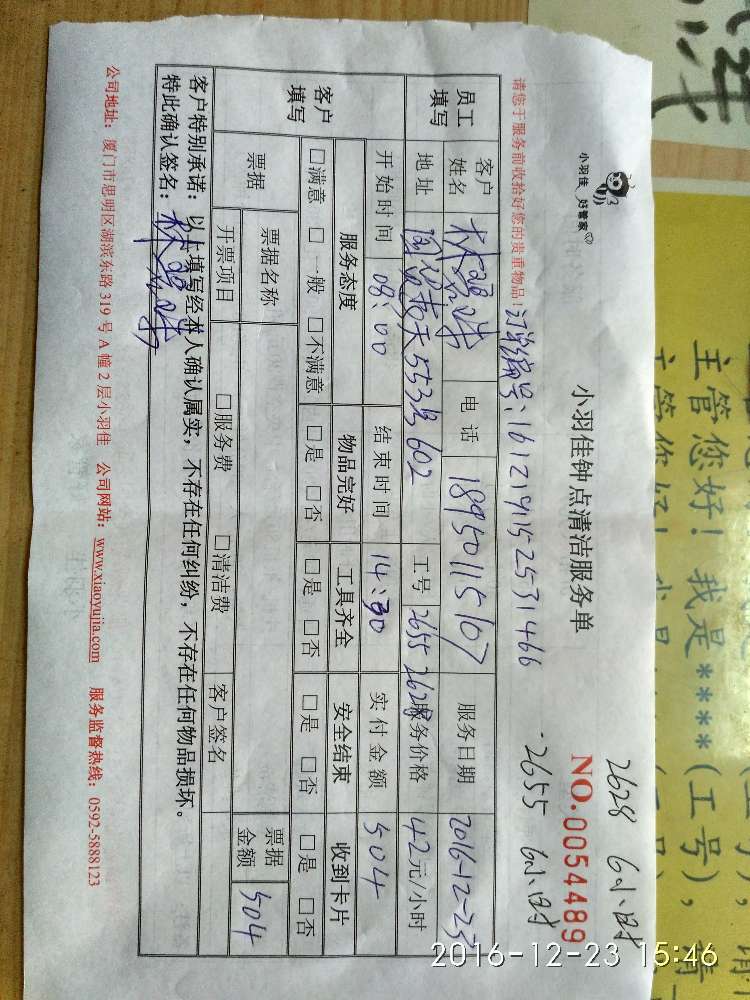 小羽佳 好管家
小羽佳钟点清洁服务单
NO.0054489
2628 6小时
2655 6小时
请您于服务前收拾好您的贵重物品!
订单编号:161219152531466
员工填写
客户姓名
电话 18950115107
服务日期 2016-12-23
地址
553号602
工号 2655 2628
服务价格 42元/小时
开始时间 08:00
结束时间 14:30
实付金额 504
客户填写
服务态度 物品完好 工具齐全 安全结束 收到卡片
□满意 □一般 □不满意 □是 □否 □是 □否 □是 □否 □是 □否
票据
票据名称
票据金额 504
开票项目 □服务费 □清洁费 客户签名
客户特别承诺:以上填写经本人确认属实,不存在任何纠纷,不存在任何物品损坏。
特此确认签名:
公司地址:厦门市思明区湖滨东路319号A幢2层小羽佳 公司网站:www.xiaoyujia.com 服务监督热线:0592-5888123
主管您好!我是****(工号),请
2016-12-23 15:46